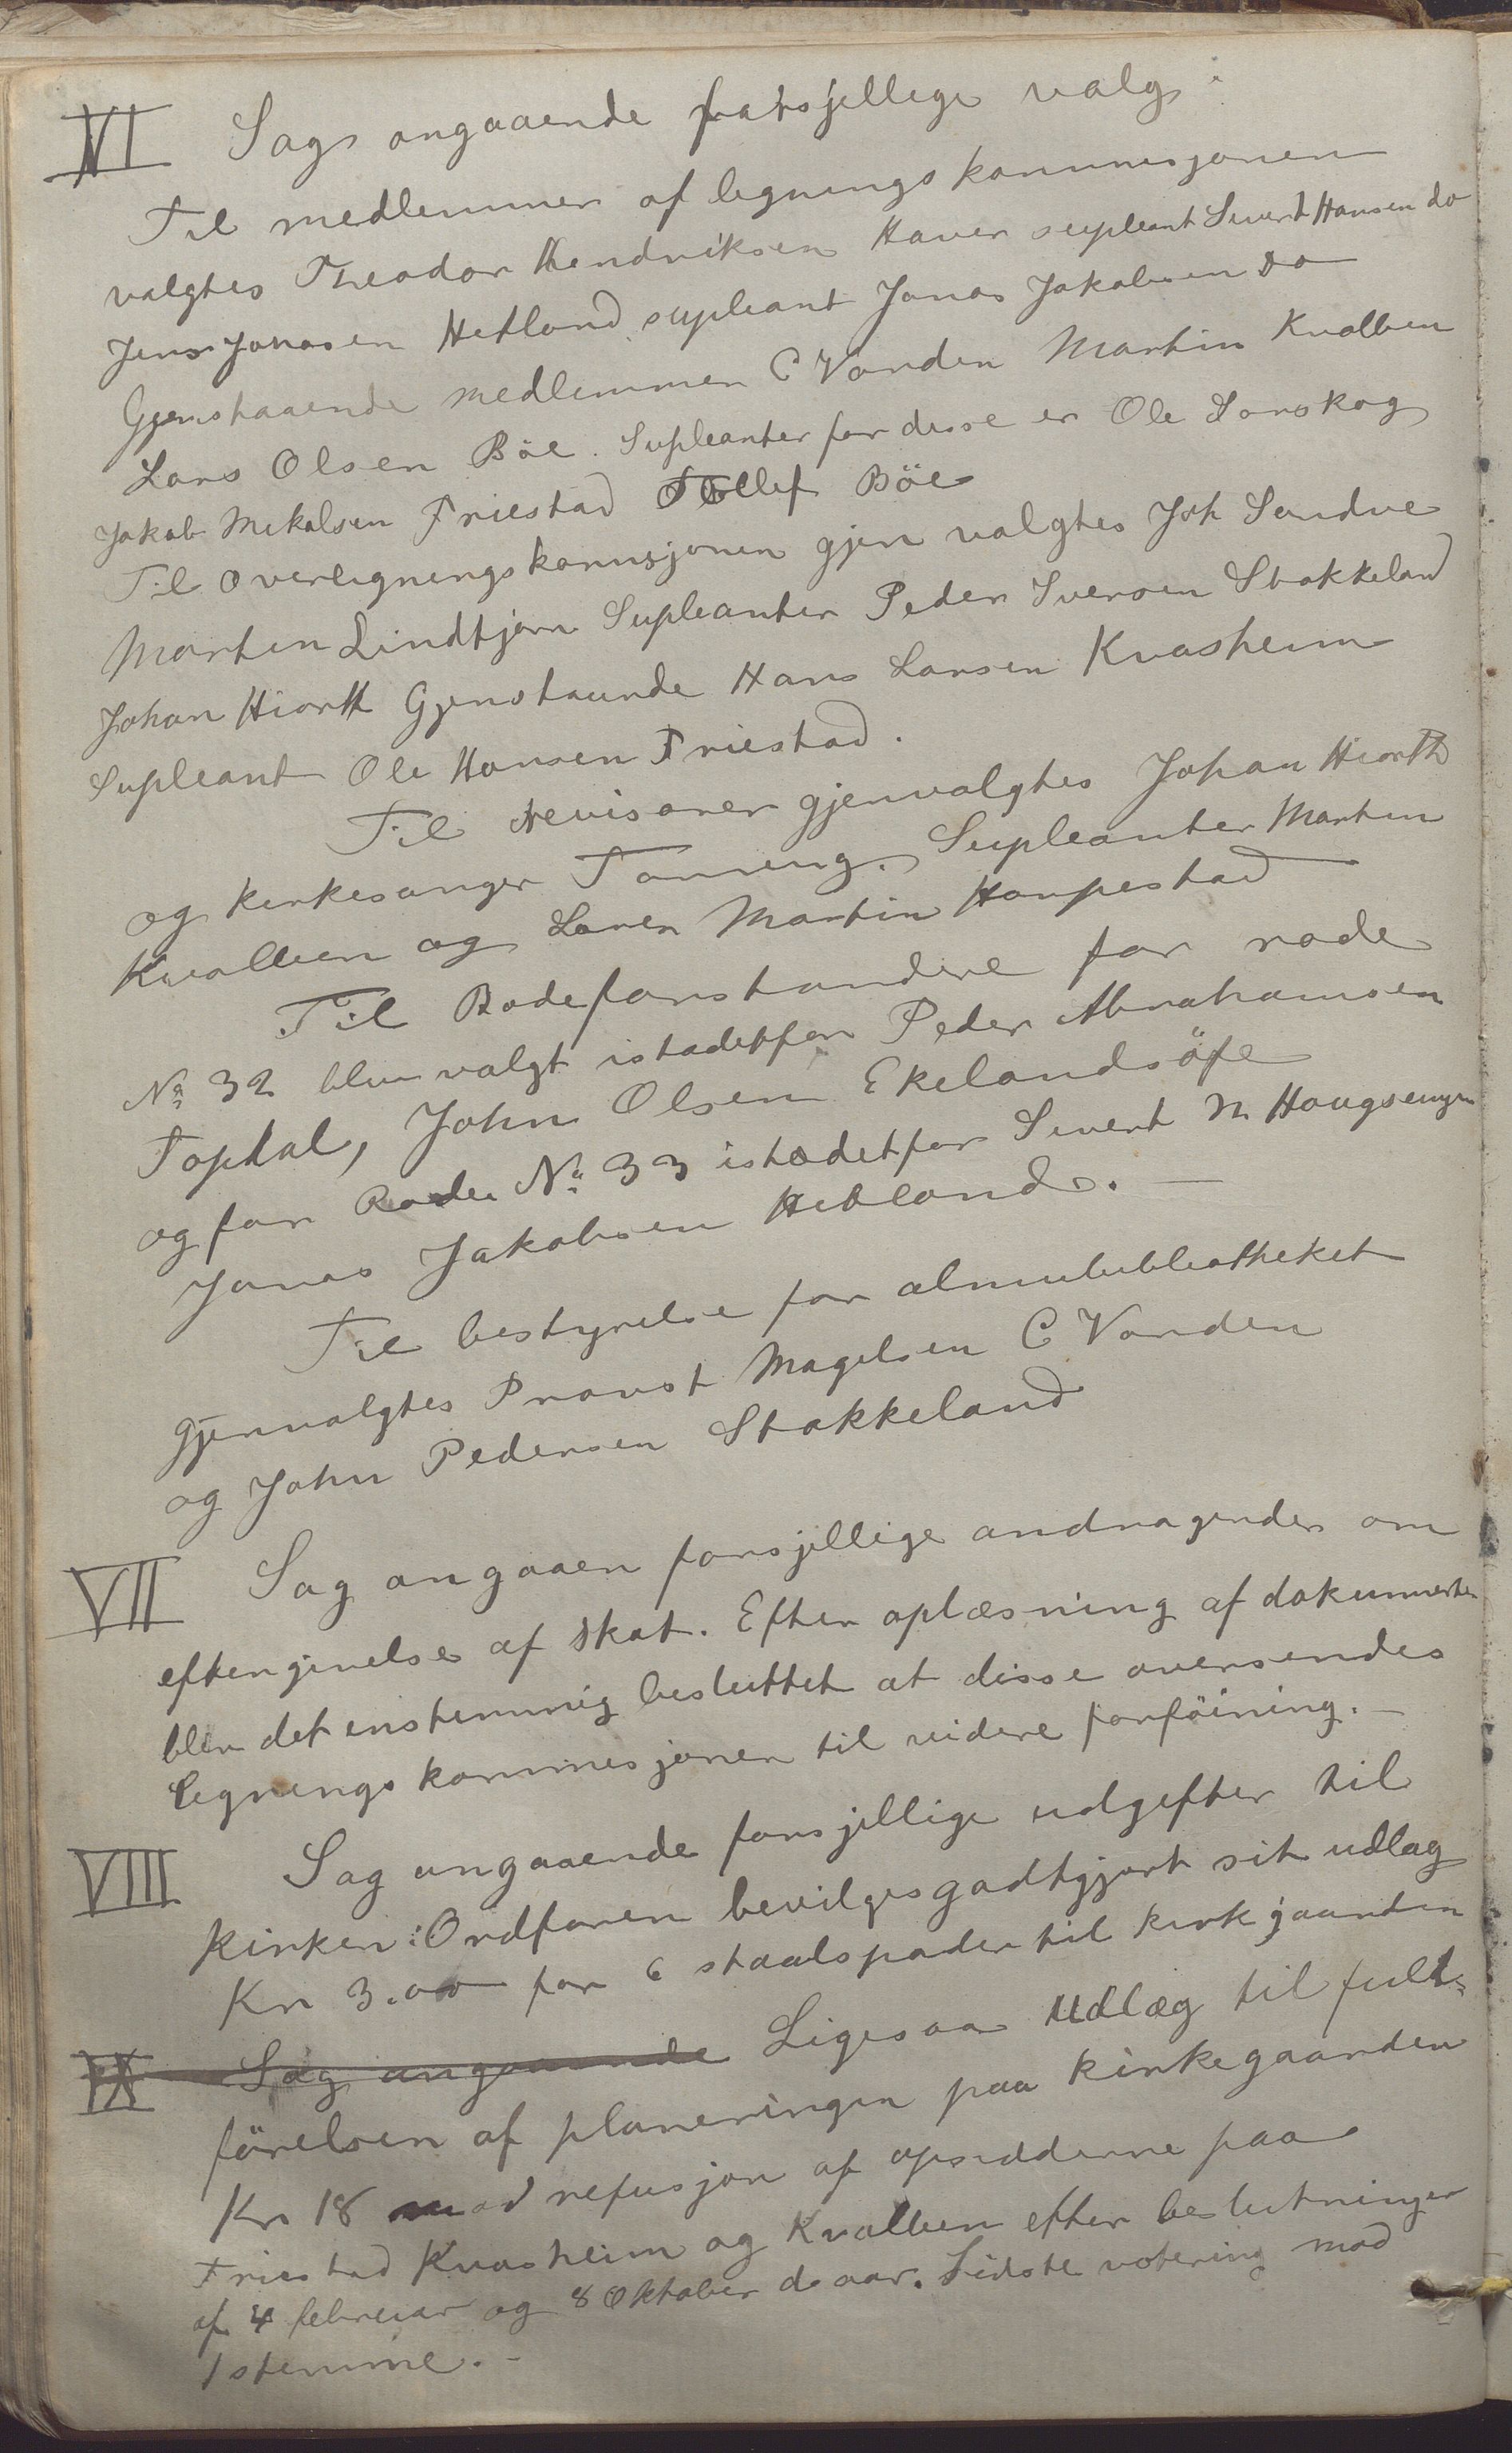 VI Sag angaaende forsjellige valg:
Til medlemmer af ligningskommisjonen
valgtes Theodor Hendriksen Haver supleant Sivert Hansen do
Jens Jonasen Hetland supleant Jonas Jakobsen Do
Gjenstaaende medlemmer C Varden Martin Kvalbein
Lars Olsen Böe. Supleanter for disse er Ole Torskog
Jakob Mikalsen Friestad Tollef Böe
Til overligningskomisjonen gjen valgtes Joh Sandve
Martin Lindtjørn Supleanter Peder Iversen Stokkeland
Johan Hiorth Gjenstaaende Hans Larsen Kvasheim
Supleant Ole Hansen Friestad.
Til Revisorer gjenvalgtes Johan Hiorth
og kirkesanger Tanning. Supleanter Martin
Kvalbein og Lærer Martin Haapestad
Til Rodeforstandere for rode
No 32 blev valgt istadetfor Peder Abrahamsen
Topdal, John Olsen Ekelandsöfe
og for Rode No 33 istadetfor Sivert N Haugsmyr
Jonas Jakobsen Hetland. —
Til bestyrelse for almubibliotheket
gjenvalgtes Provst Magelsen C Varden
og John Pedersen Stokkeland
VII Sag angaaen forsjellige andragender om
eftergivelse af skat. Efter oplæsning af dokumenter
blev det enstemmig besluttet at disse oversendes
ligningskommisjonen til videre forföining. —
VIII Sag angaaende forsjellige udgifter til
kirken: Ordføren bevilges godtgjort sit udlæg
Kr 3.00 for 6 staalspader til kirkgaarden
IX Sag angaaende Ligesaa Udlæg til fuld-
förelsen af planeringen paa kirkegaarden
Kr 18 mod refusjon af opsidderne paa
Friestad Kvasheim og Kvalbein efter beslutninger
af 4 februar og 8 Oktober d. aar. Sidste votering mod
1 stemme. -